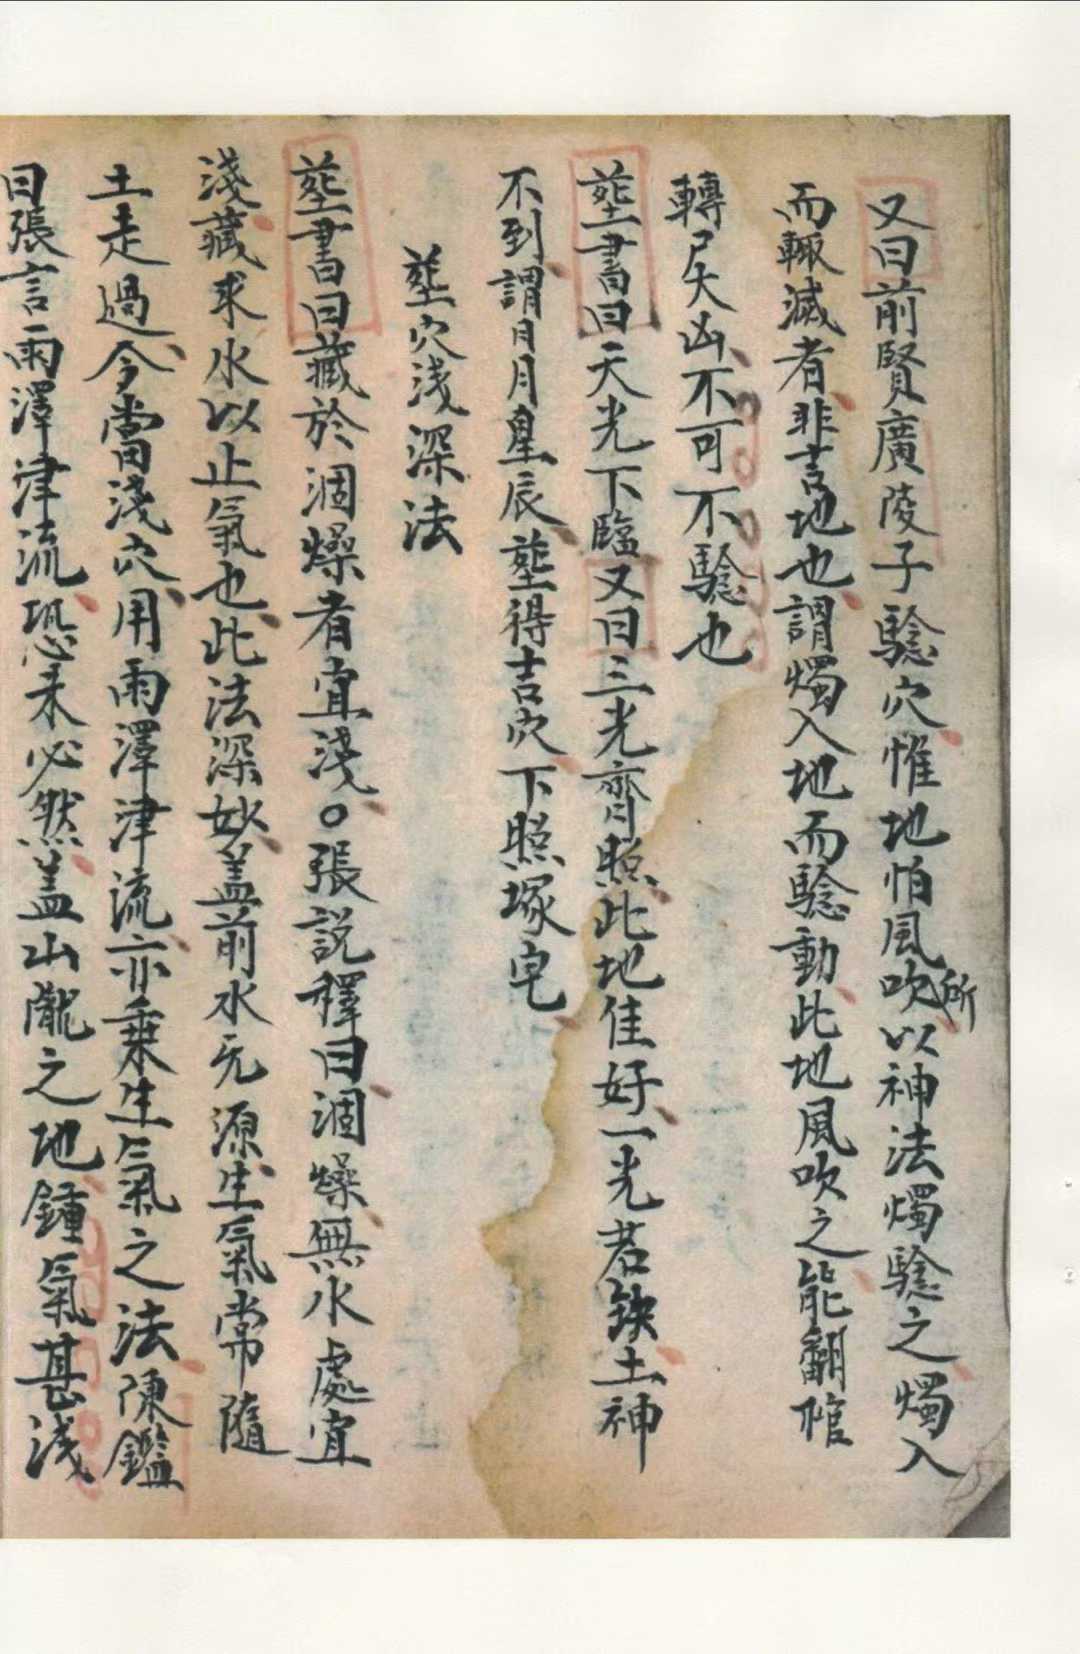 又曰前賢廣陵子驗穴惟地怕風吹所以神法燭驗之燭入
而輙滅者非吉地也謂燭入地而驗動此地風吹之能翻棺
轉尸大凶不可不驗也
塟書曰天光下臨又曰三光齊照此地佳好一光若缺土神
不到謂日月皇辰塟得吉穴下照塚宅
塟穴淺深法
塟書曰藏於涸燥者宜淺○張説釋曰涸燥無水處宜
淺藏求水以止氣也此法深妙盖前水无源生氣常隨
土走過今當淺穴用雨澤津流亦乗生氣之法陳鑑
曰張言雨澤津流恐未必然盖山隴之地鍾氣甚淺